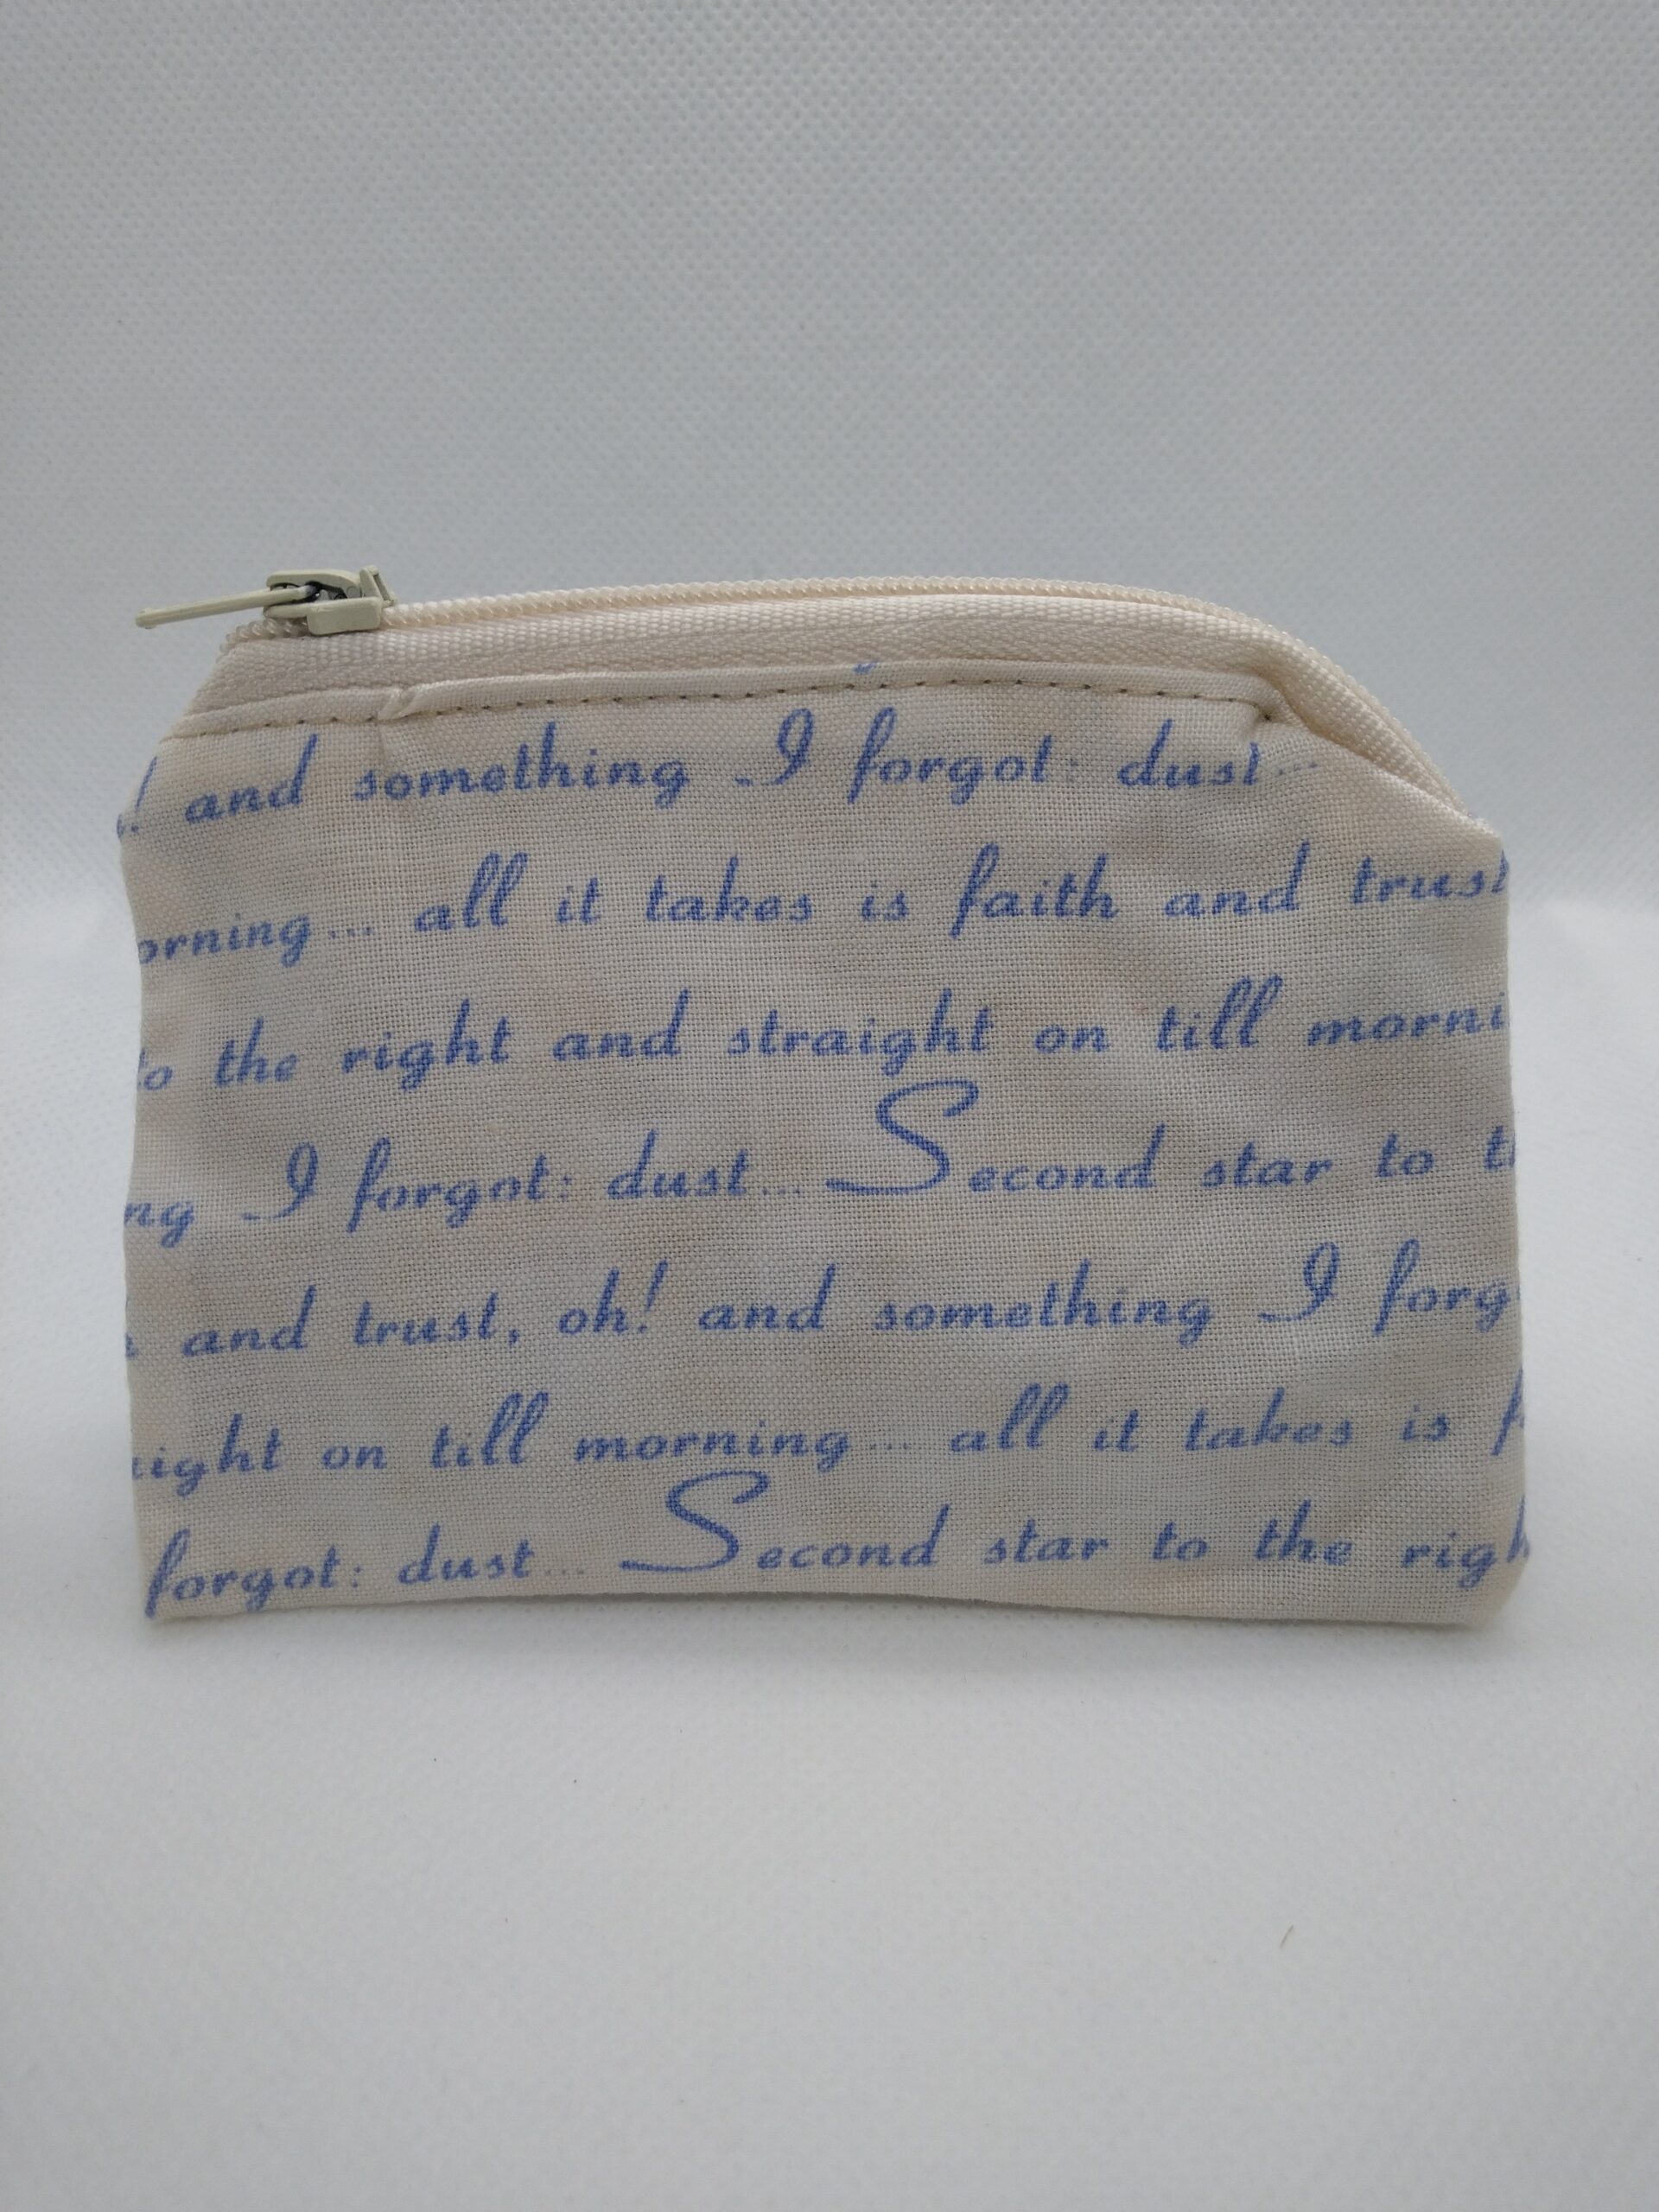 ! and something I forgot: dust...
orning... all it takes is faith and trust
to the right and straight on till morni
ng I forgot: dust... Second star to t
and trust, oh! and something I forg
ight on till morning... all it takes is f
forgot: dust... Second star to the righ